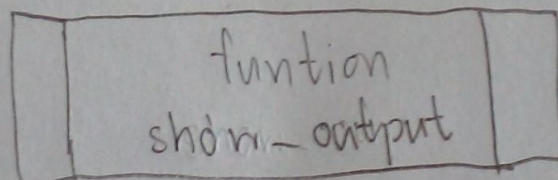 funtion
show_output